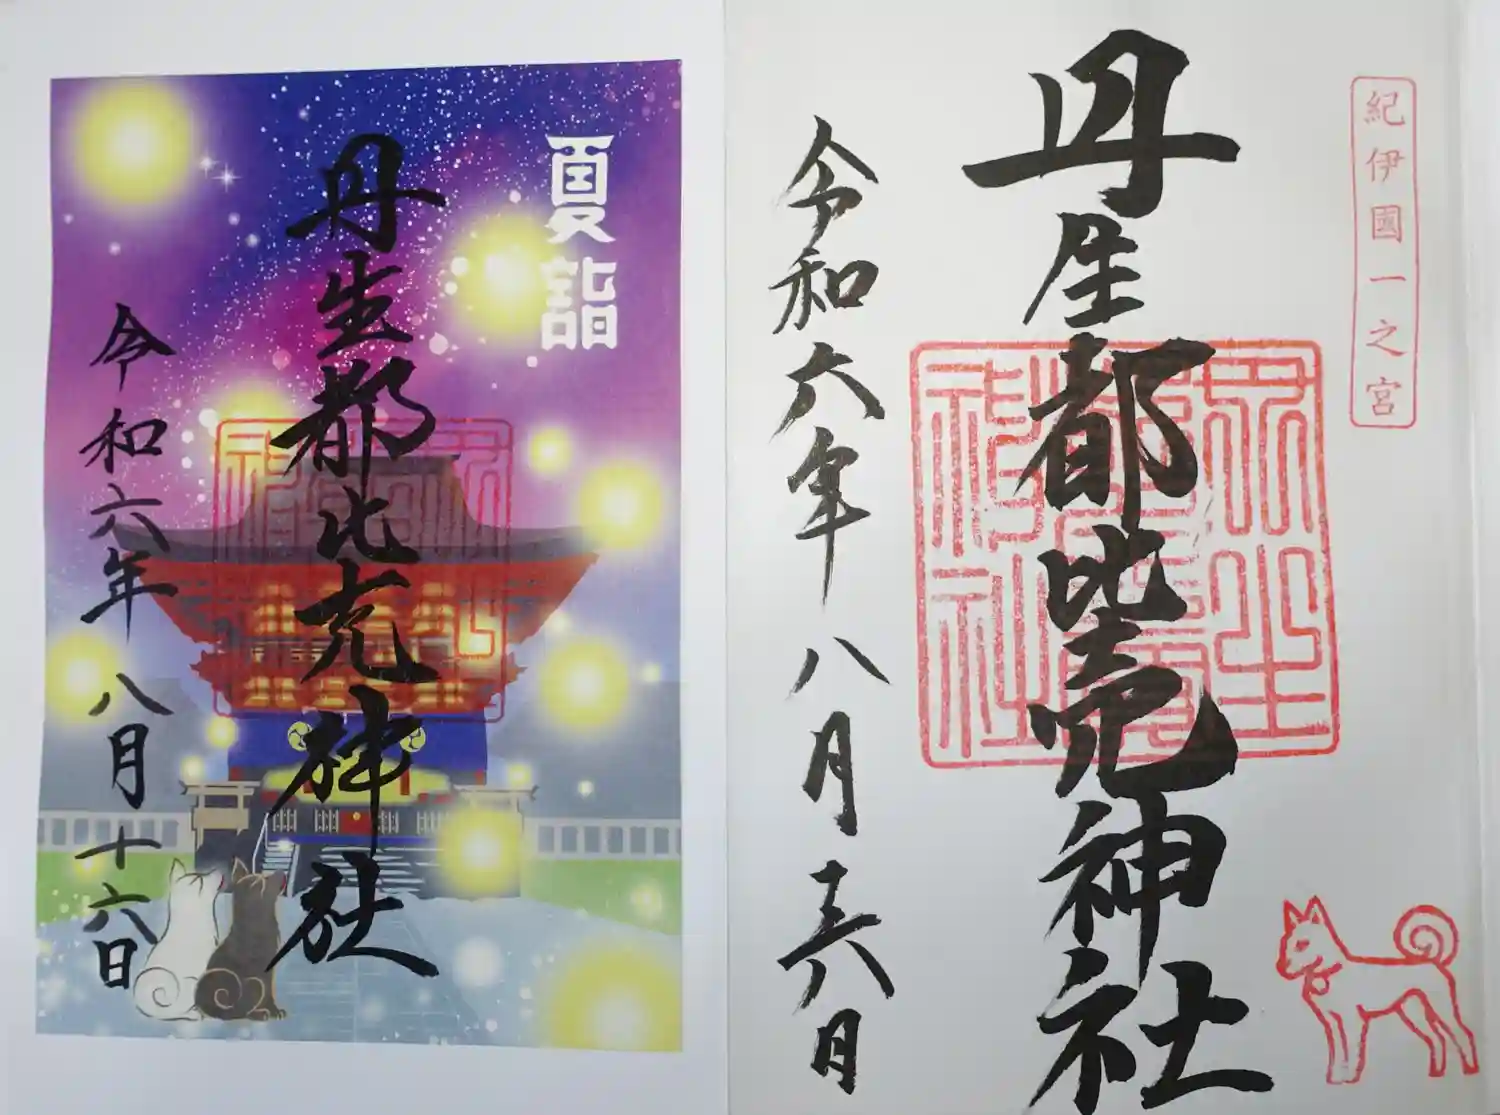 紀伊國一之宮
丹生都比売神社
令和六年八月十六日
夏詣
丹生都比売神社
令和六年八月十六日